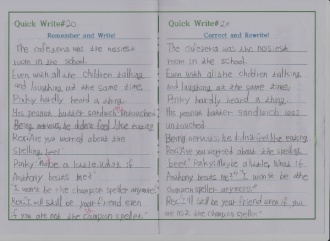 Quick Write #20
Remember and Write!
The cafeteria was the noisiest
room in the school.
Even with all the children talking
and laughing at the same time,
Pinky hardly heard a thing.
His peanut butter sandwich untouched
Being nervous, he didn't feel like eating
Rox: Are you worried about the
spelling bee?
Pinky: Maybe a little. What if
Anthony beats me?
"I won't be the champion speller anymore"
Rox: I will still be your friend even
if you are not the champion speller."
Quick Write #20
Correct and Rewrite!
The cafeteria was the noisiest
room in the school.
Even with all the children talking
and laughing at the same time,
Pinky hardly heard a thing.
His peanut butter sandwich was
untouched.
Being nervous, he didn't feel like eating
Rox: Are you worried about the spelling
bee? Pinky: Maybe a little. What if
Anthony beats me? "I won't be the
champion speller anymore"
Rox: I will still be your friend even if you
are not the champion speller."